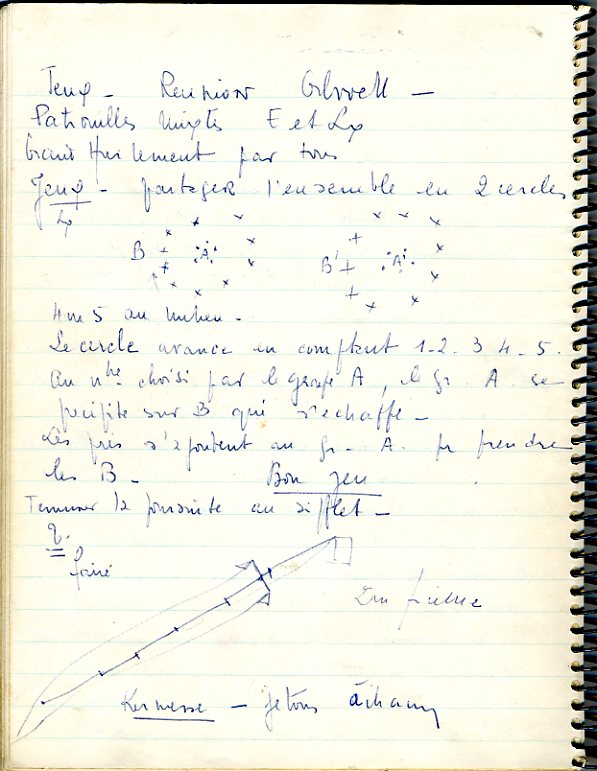 Jeux - Réunion Gilwell -
Patrouilles mixtes E et Lx
Grand Hurlement par tous
Jeux - partager l'ensemble en 2 cercles
Lx
B A B' A'
4 ou 5 au milieu -
Le cercle avance en comptant 1-2. 3 4 - 5.
Au nbre choisi par le groupe A, le gr. A se
précipite sur B qui s'échappe -
Les pris s'ajoutent au gr - A. pr prendre
les B - Bon jeu
Terminer la poursuite au sifflet -
2.
faire
Kermesse - Jetons à chacun